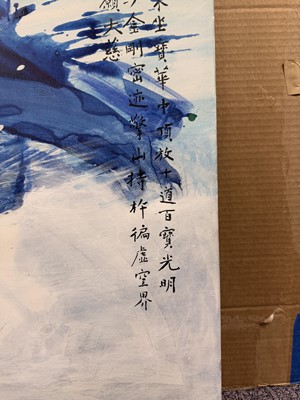 來坐寶華中頂放十道百寶光明
金剛密迹擎山持杵徧虛空界
願大慈